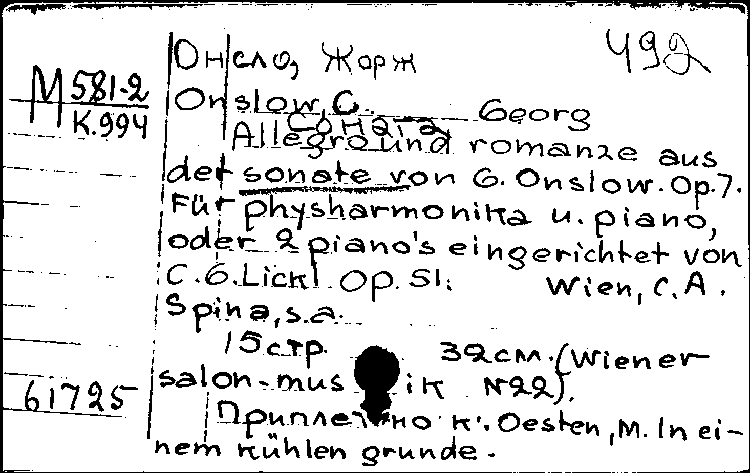 Онсло, Жорж 492
М 581-2
К.994
Onslow, G. Georg
Соната
Allegro und romanze aus
der sonate von G. Onslow. Op.7.
Für physharmonika u. piano,
oder 2 piano's eingerichtet von
C.G.Lickl. Op. 51. Wien, C.A.
Spina, s.a.
15 стр. 32 см. (Wiener
salon-musik N22).
61725
Приплетено к: Oesten, M. In ei-
nem kühlen grunde.